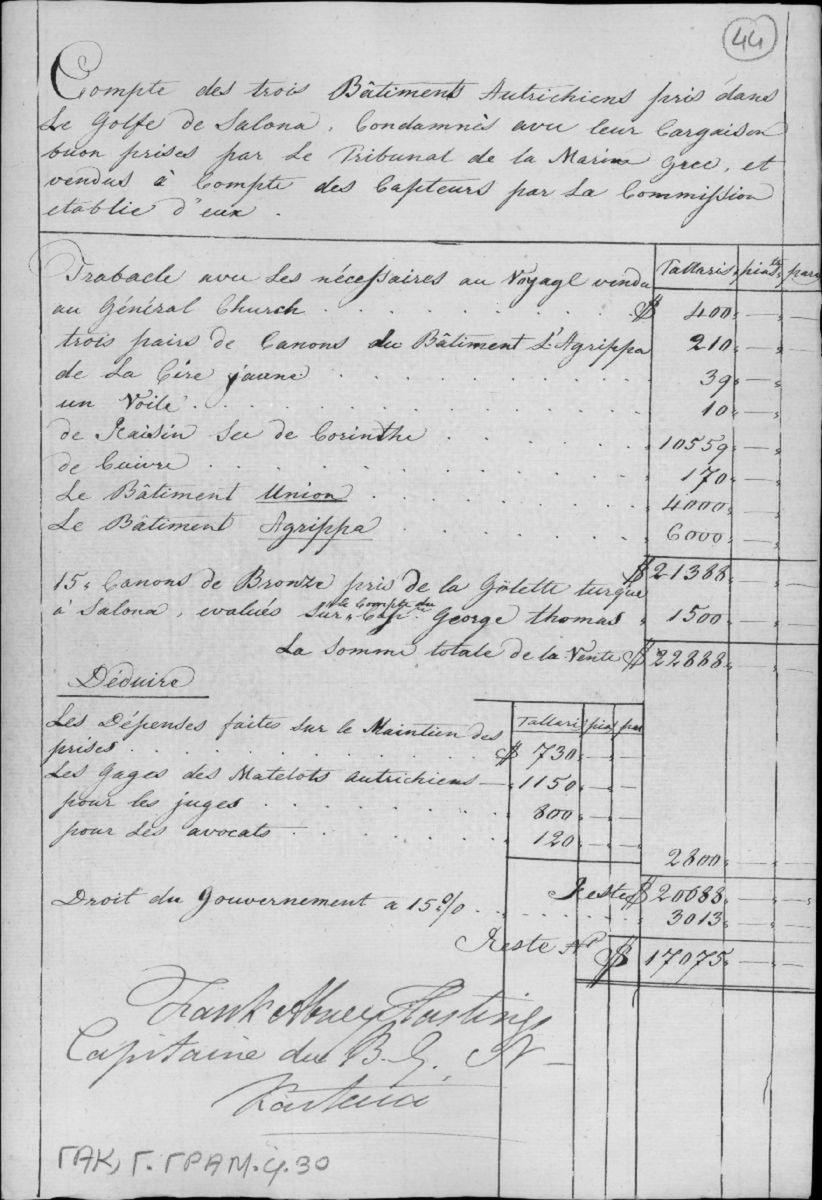 44
Compte des trois Bâtiments Autrichiens pris dans
Le Golfe de Salona, Condamnès avu leur Cargaison
buon prises par Le Tribunal de la Marine Grec, et
vendus à Compte des Capteurs par La Commission
etablie d'eux.
Tallaris piast para
Trabacle avu Les nécessaires au Voyage vendu
au Général Church . . . $ 400 " — "
trois pairs de Canons du Bâtiment L'Agrippa 210 " — "
de La Cire jaune . . . 39 " — "
un Voile . . . 10 " — "
de Raisin Sec de Corinthe . . . " 10559 " — "
de Cuivre . . . " 170 " — "
Le Bâtiment Union . . . " 4000 " — "
Le Bâtiment Agrippa . . . " 6000 " — "
$ 21388 " — "
15 " Canons de Bronze pris de la Gölette turque
à Salona, evalués sur le Compte du Cape. George Thomas " 1500 " — "
La Somme totale de la Vente $ 22888 " — "
Déduire
Tallaris pia par
Les Dépenses faites sur le Maintien des
prises . . . $ 730 " — "
Les Gages des Matelots Autrichiens — " 1150 " — "
pour les juges . . . " 800 " — "
pour Les avocats . . . " 120 " — "
2800 " — "
Reste $ 20088 " — "
Droit du Gouvernement a 15 % . . . 3013 " — "
Reste Nt $ 17075 " — "
Frank Abney Hastings
Capitaine du B. G. N
Karteria
ΓΑΚ, Γ. ΓΡΑΜ. φ. 30